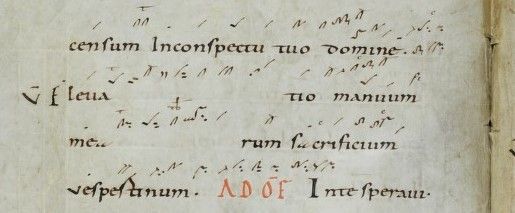 censum Inconspectu tuo domine.
V̄ Eleua tio manuum
mea rum sacrificium
vespertinum. AD OF̄ Inte speraui.